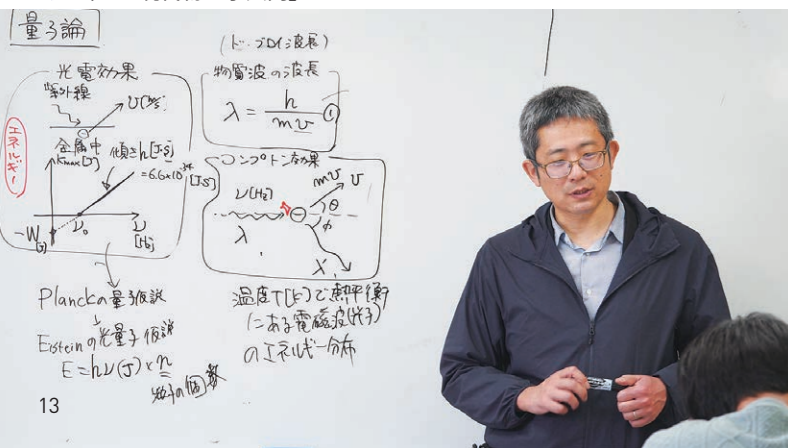 量子論
光電効果
紫外線
υ[m/s]
金属中
エネルギー
Kmax[J]
傾き h[J・S]
=6.6×10⁻³⁴[J・S]
-W
[J]
ν₀
ν
[Hz]
Planckの量子仮説
↓
Einsteinの光量子仮説
E=hν(J)×n
粒子の個数
(ド・ブロイ波長)
物質波の波長
λ = h / mυ ①
コンプトン効果
ν[Hz]
λ
mυ
υ
θ
φ
温度T[K]で熱平衡
にある電磁波(光子)
のエネルギー分布
13